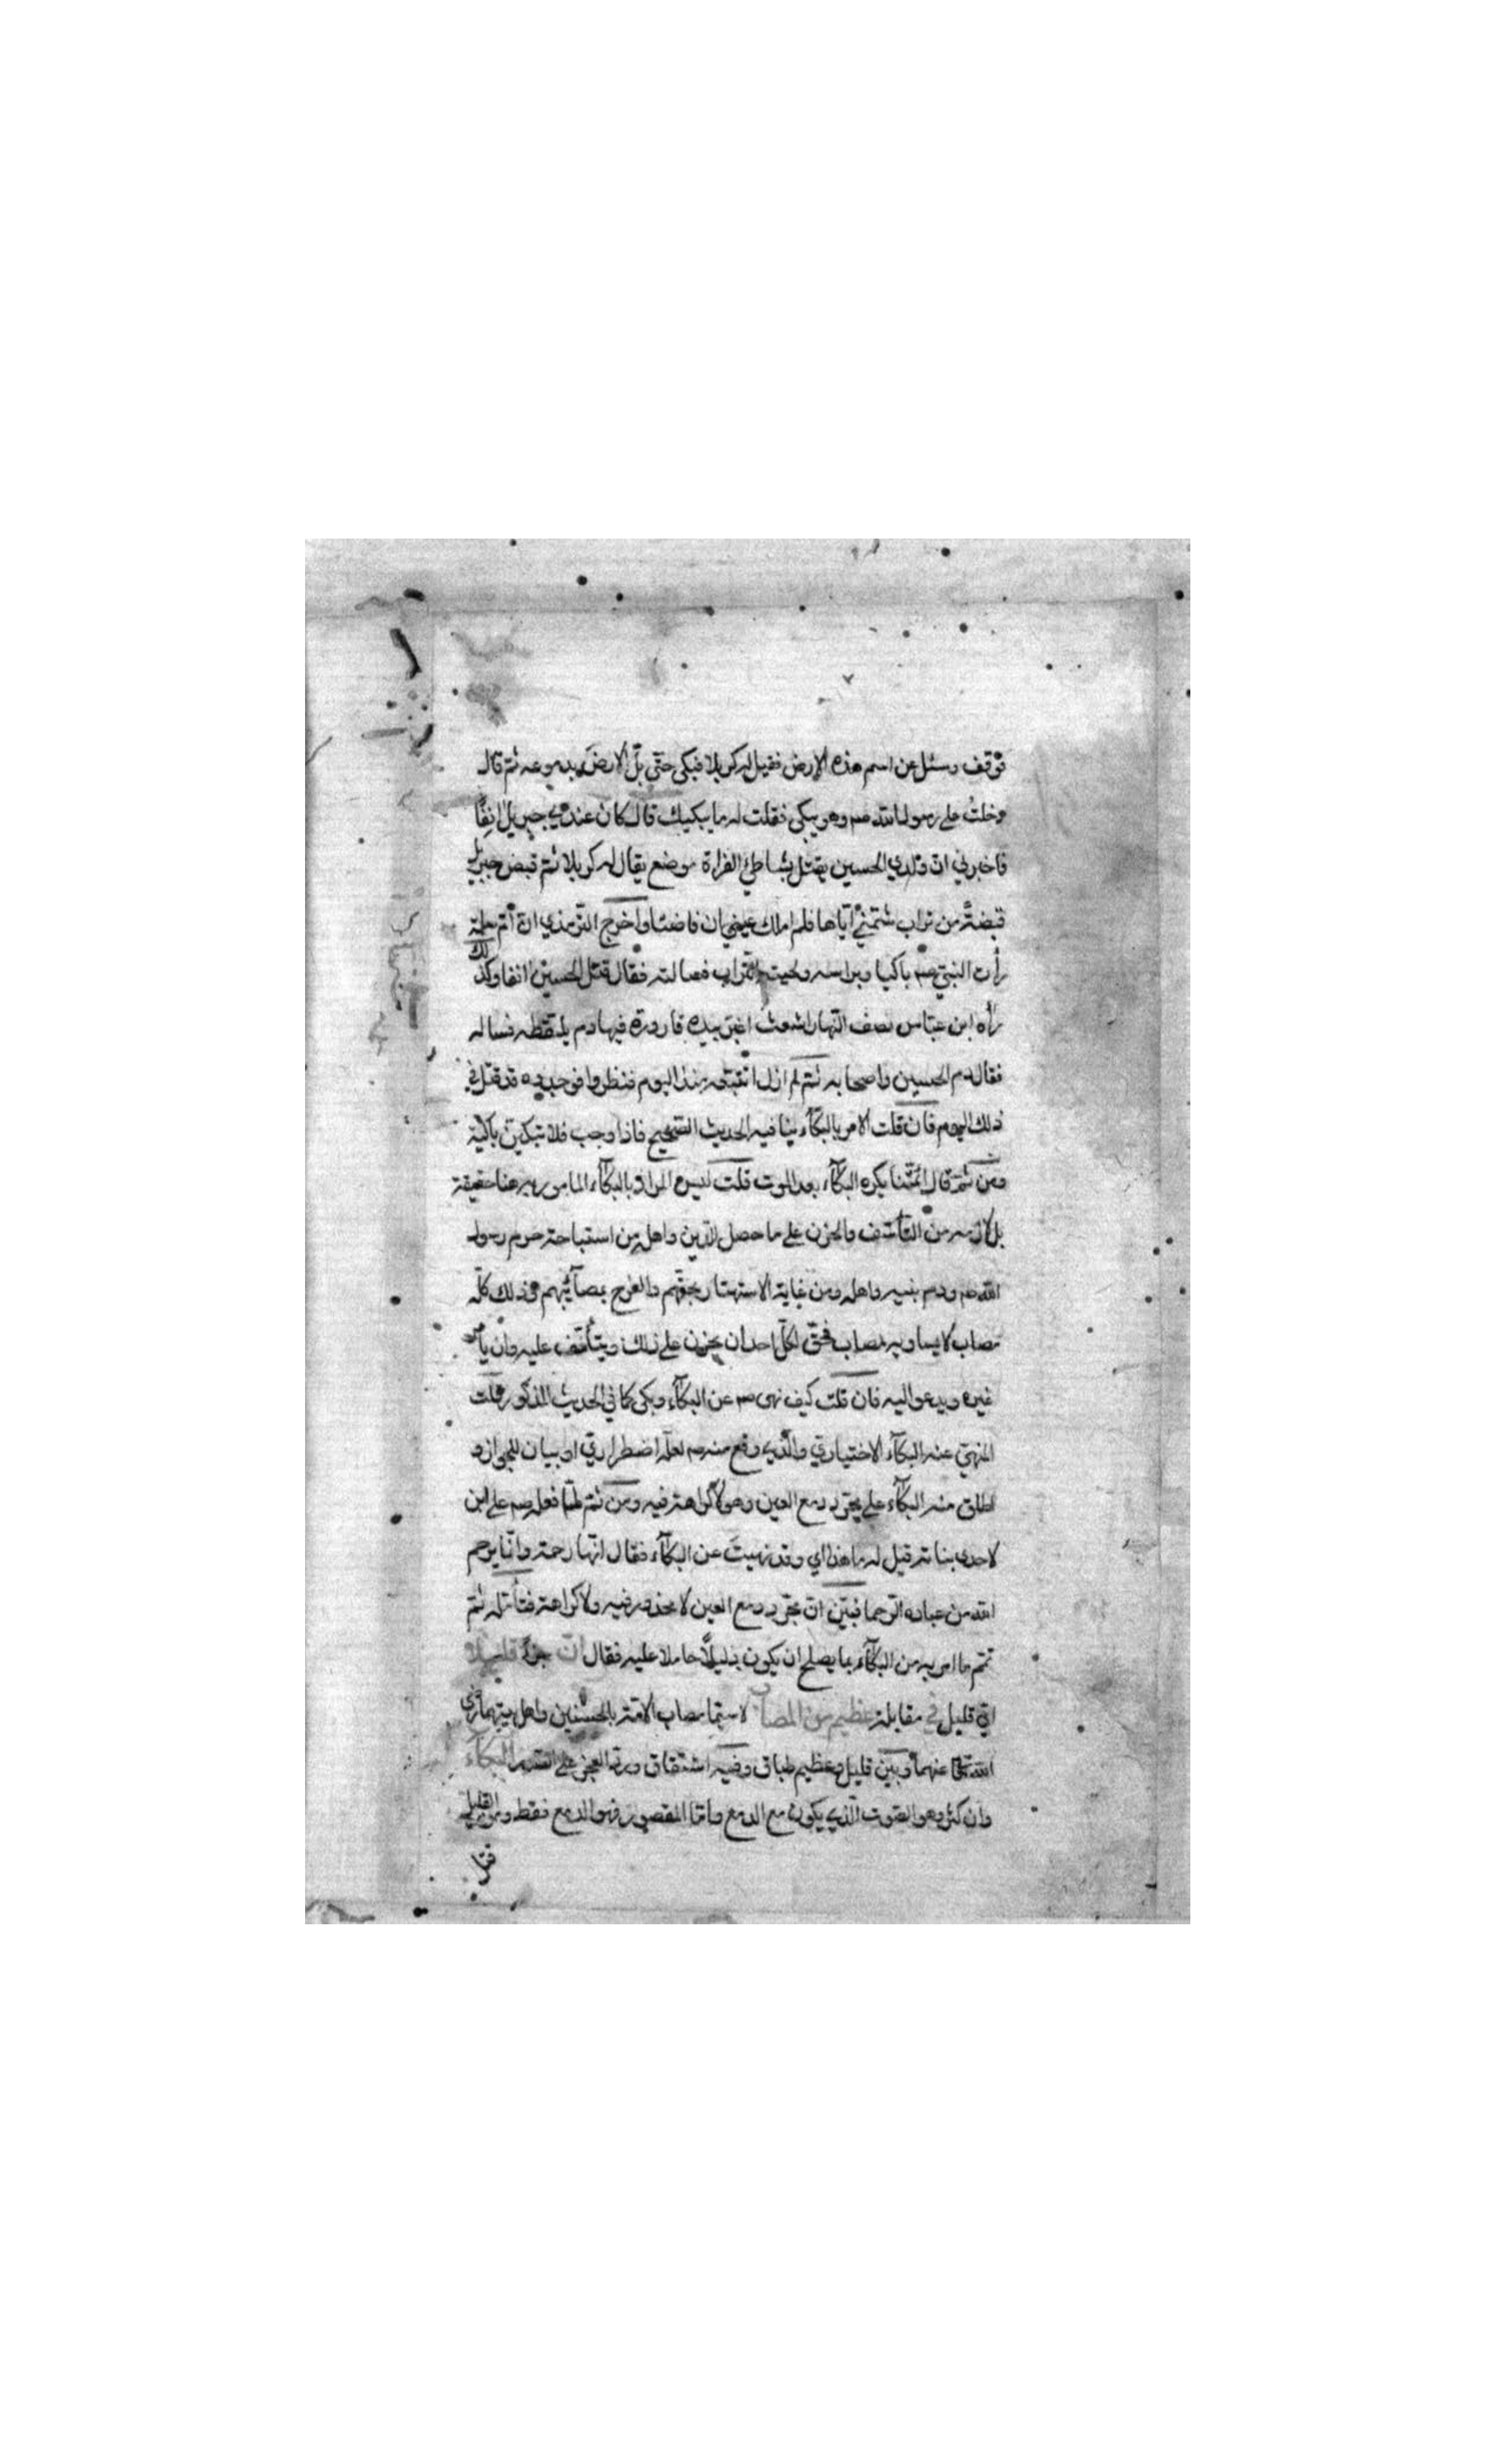 فوقف وسئل عن اسم هذه الارض فقيل له كربلا فبكى حتى بل الارض بدموعه ثم قال
دخلتُ على رسول الله صم وهو يبكي فقلت له ما يبكيك قال كان عندي جبريل آنفًا
فاخبرني ان ولدي الحسين يقتل بشاطئ الفراة موضع يقال له كربلا ثم قبض جبريل
قبضةً من تراب شمني اياها فلم املك عيني ان فاضتا واخرج الترمذي ان ام سلمة
رأت النبي صم باكيا وبراسه ولحيته التراب فسالته فقال قتل الحسين انفا وكذلك
رأه ابن عباس نصف النهار اشعث اغبر بيده قارورة فيها دم يلتقطه فساله
فقال دم الحسين واصحابه ثم لم ازل اتتبعه منذ اليوم فنظروا فوجدوه قد قتل في
ذلك اليوم فان قلت الامر بالبكآء ينافيه الحديث الصحيح فاذا وجب فلا تبكين باكية
ومن ثمة قال ائمتنا يكره البكآء بعد الموت قلت ليس المراد بالبكآء المامور به هنا حقيقة
بل لازمه من التأسف والحزن على ما حصل للدين واهله من استباحة حرم رسول
الله صم ودم بنيه واهله ومن غاية الاستهتار بحقهم والفرح بمصآئبهم في ذلك كله
مصاب لا يساويه مصاب فحق لكل احد ان يحزن على ذلك ويتأسف عليه وان يأمر
غيره ويدعو اليه فان قلت كيف نهى صم عن البكآء وبكى كما في الحديث المذكور قلت
المنهي عنه البكآء الاختياري والذي وقع منه صم لعله اضطراري او بيان للجواز و
اطلق منه البكآء على مجرد دمع العين وهو لا كراهة فيه ومن ثم لما فعله صم على ابن
لاحدى بناته قيل له ما هذا اي وقد نهيتَ عن البكآء فقال انها رحمة وانما يرحم
الله من عباده الرحما فبين ان مجرد دمع العين لا محذور فيه ولا كراهة فتأمله ثم
تمم ما امر به من البكآء بما يصلح ان يكون دليلًا حاملا عليه فقال ان قليلا
اي قليل في مقابلة عظيم من المصاب لا سيما مصاب الامة بالحسنين واهل بيتهما رضى
الله تعا عنهما وبين قليل وعظيم طباق وفيه اشتقاق ورد العجز على الصدر البكآء
وان كثر وهو الصوت الذي يكون مع الدمع واما المقصور فهو الدمع فقط ومن القليل